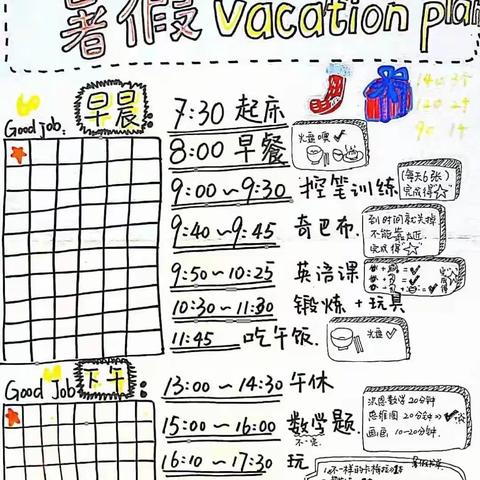 暑假 vacation plan
140 3个
120 2个
90 1个
Good job: 早晨
7:30 起床
8:00 早餐
光盘噢 ✓
9:00~9:30 控笔训练
(每天6张)
完成得☆
9:40~9:45 奇巴布.
到时间就关掉
不能靠太近.
完成得☆
9:50~10:25 英语课
完成得
10:30~11:30 锻炼+玩具
11:45 吃午饭.
光盘 ✓
Good Job 下午:
13:00~14:30 午休
15:00~16:00 数学题.
不一定.
20分钟
思维图 20分钟
画画 10-20分钟.
16:10~17:30 玩